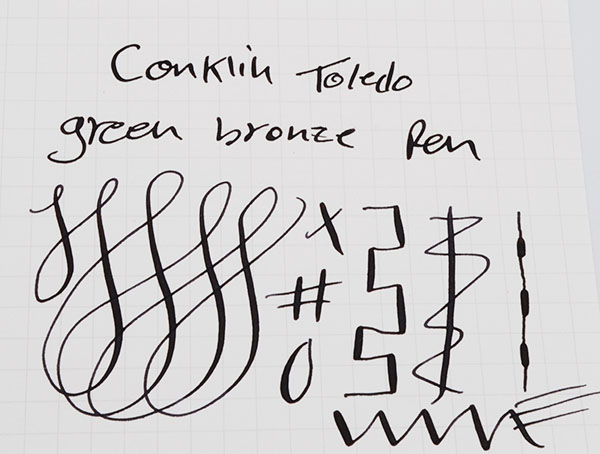 Conklin Toledo
green bronze Pen
x
#
0